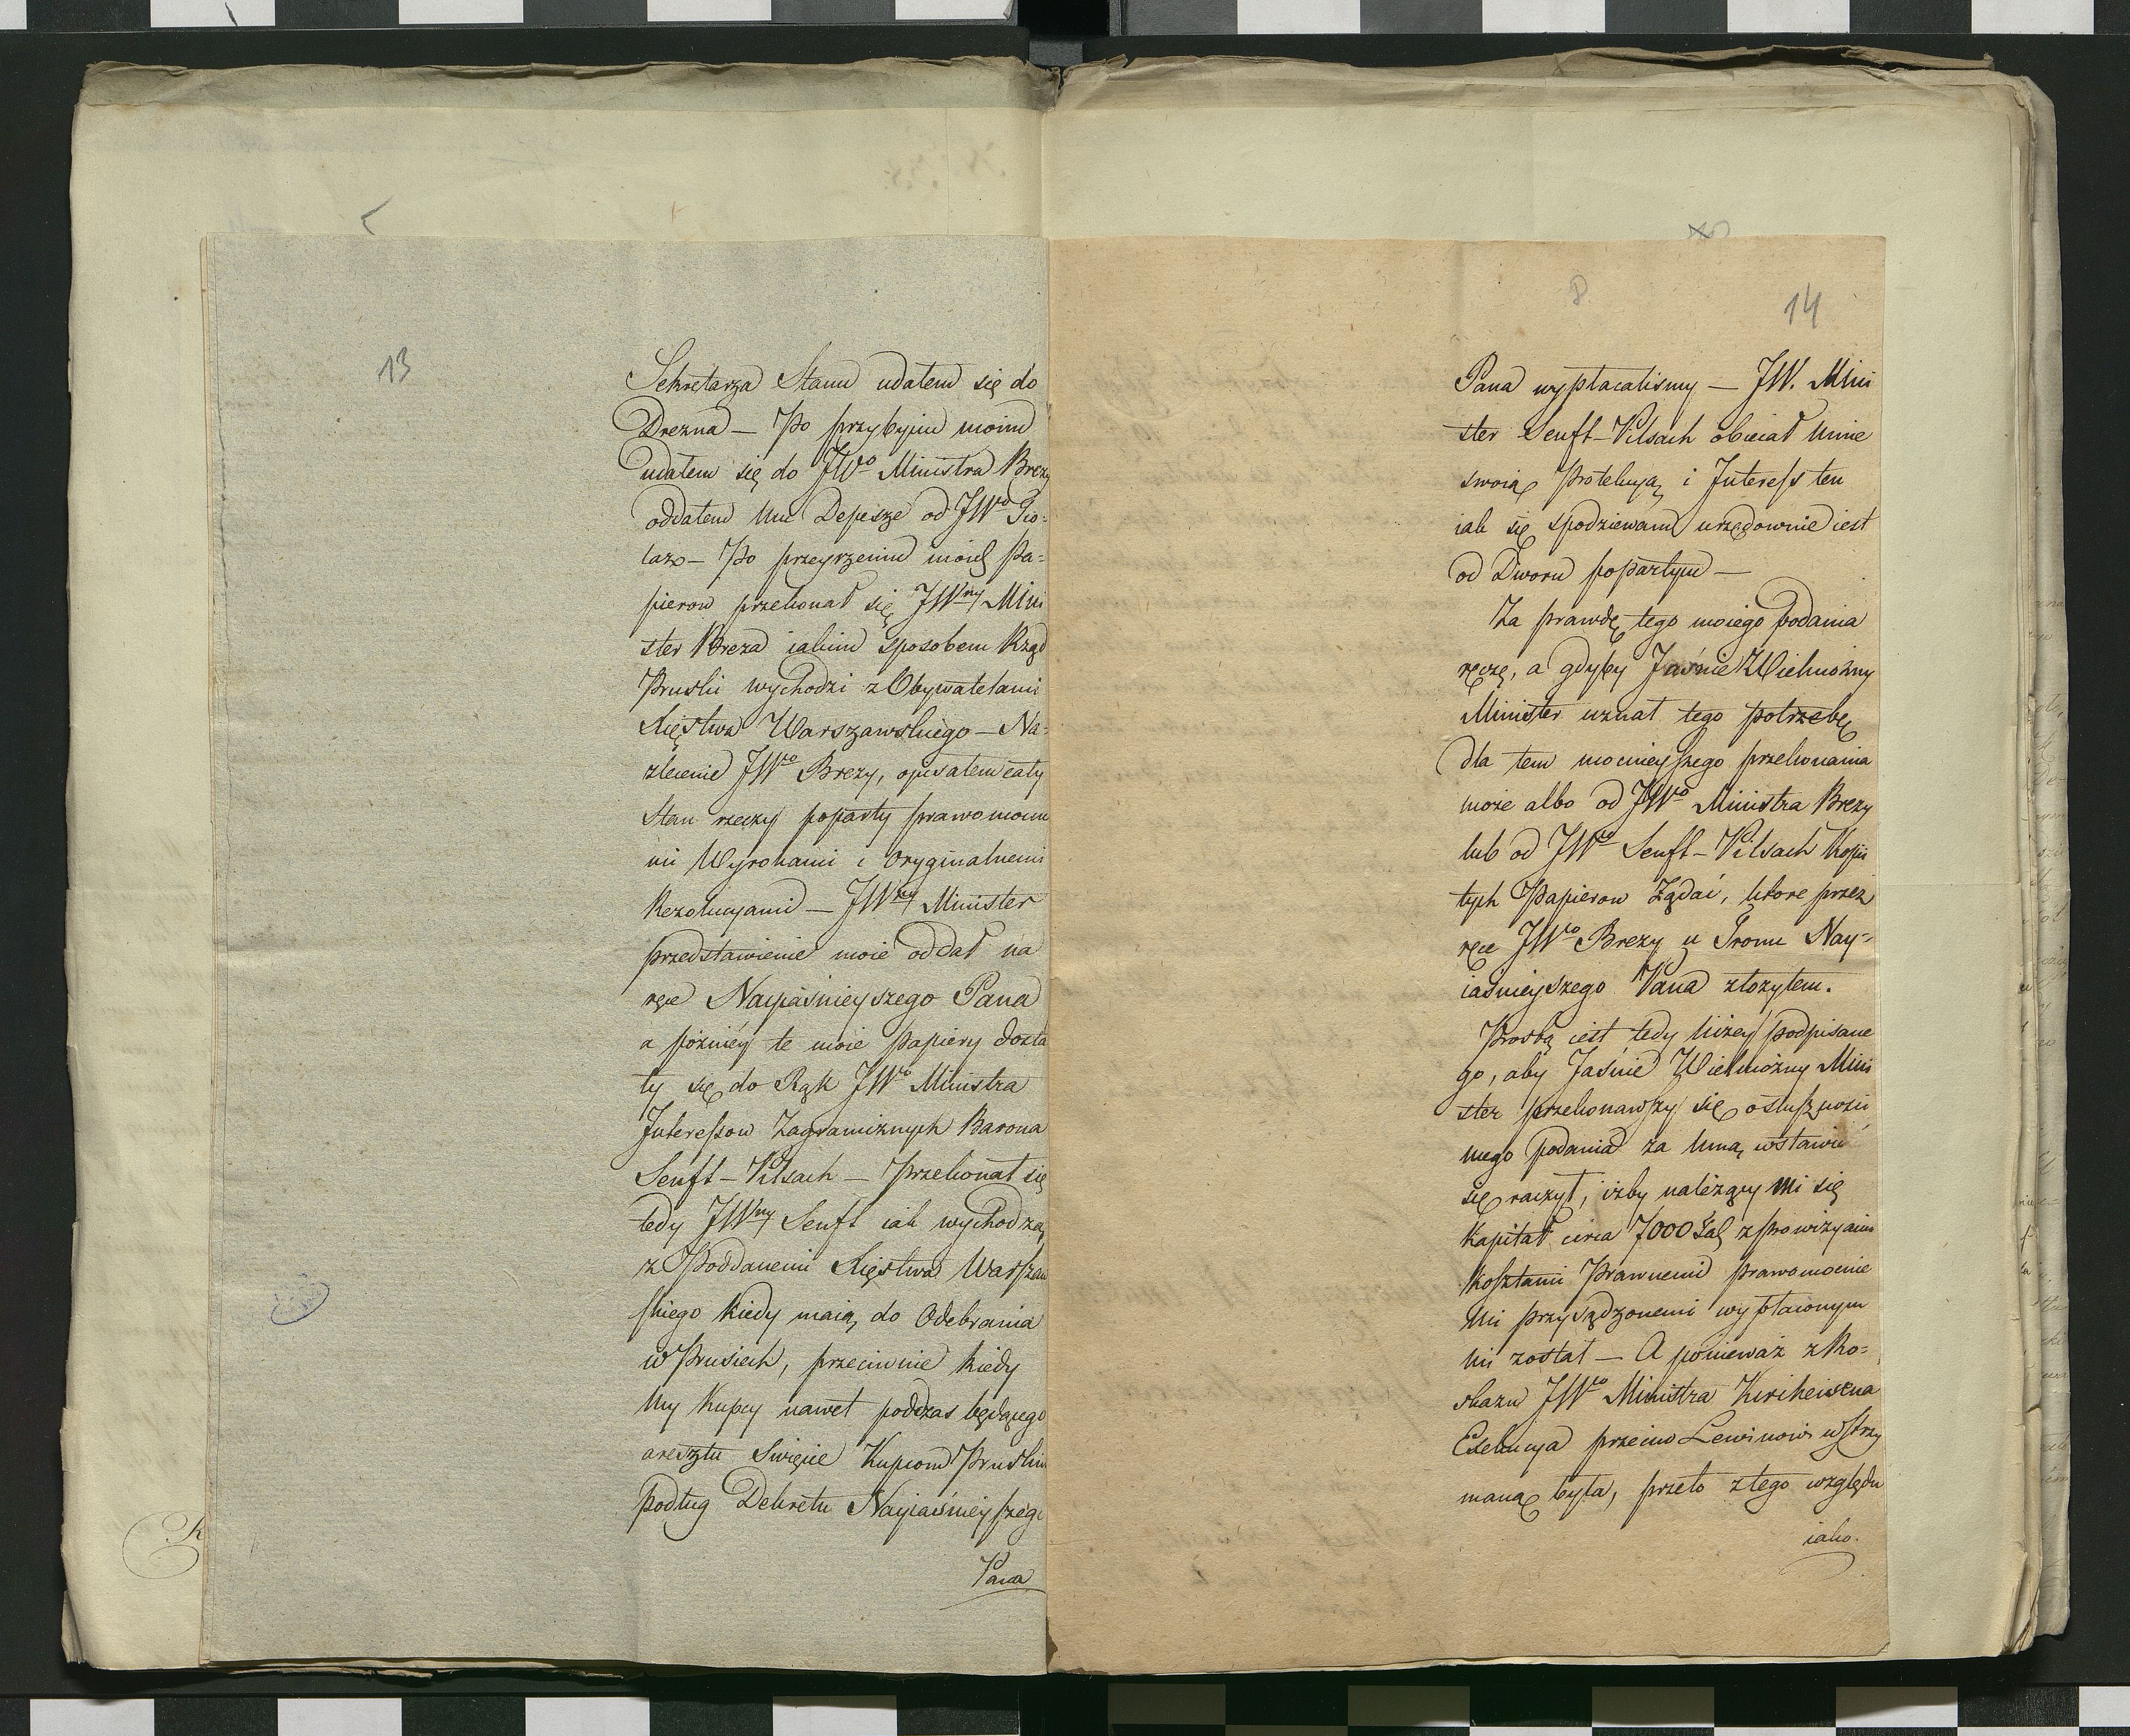 13
Sekretarza Stanu udałem się do
Drezna — Po przybyciu moim
udałem się do JWo Ministra Brezy
oddałem Mu Depesze od JWo
Po przeyrzeniu moich Pa-
pierow przekonał się JWny Mini
ster Breza iakim sposobem Rząd
Pruski wychodzi z Obywatelami
Xięstwa Warszawskiego — Na-
zlecenie JWo Brezy, opisałem cały
Stan rzeczy poparty prawomocne
mi Wyrokami i Oryginalnemi
Rezolucyami — JWny Minister
przedstawienie moie oddał na
ręce Nayiaśnieyszego Pana
a pózniéy te moie Papiery dosta
ły się do Rąk JWo Ministra
Interessow Zagranicznych Barona
Senft-Pilsach — Przekonał się
tedy JWny Senft iak wychodzą
z Poddanemi Xięstwa Warszaw
skiego kiedy maią do Odebrania
w Prusiech, przeciwnie kiedy
My Kupcy nawet podczas będącego
aresztu Swięcie Kupcom Pruskim
podług Dekretu Nayiaśnieyszego
Pana
8
14
Pana wypłacalismy — JW. Mini
ster Senft-Pilsach obiecał Mnie
swoią Protekcyą i Interess ten
iak się spodziewam urzędownie iest
od Dworu popartym —
Za prawdę tego moiego podania
ręczę, a gdyby Jaśnie Wielmożny
Minister uznał tego potrzebę
dla tem mocnieyszego przekonania
może albo od JWo Ministra Brezy
lub od JWo Senft-Pilsach Kopii
tych Papierow Żądać, ktore przez
ręce JWo Brezy u Tronu Nay-
iaśnieyszego Pana złożyłem.
Prosbą iest tedy niżey podpisane
go, aby Jaśnie Wielmożny Mini
ster przekonawszy się o słuszności
mego podania za Mną wstawić
się raczył, iżby należący mi się
Kapitał circa 7000 Tal z prowizyami
kosztami Prawnemi prawomocnie
Mi przysądzonemi wypłaconym
mi został — A ponieważ z Ro-
skazu JWo Ministra Kircheisena
Exekucya przeciw Lewinowi wstrzy
maną była, przeto z tego względu
iako.